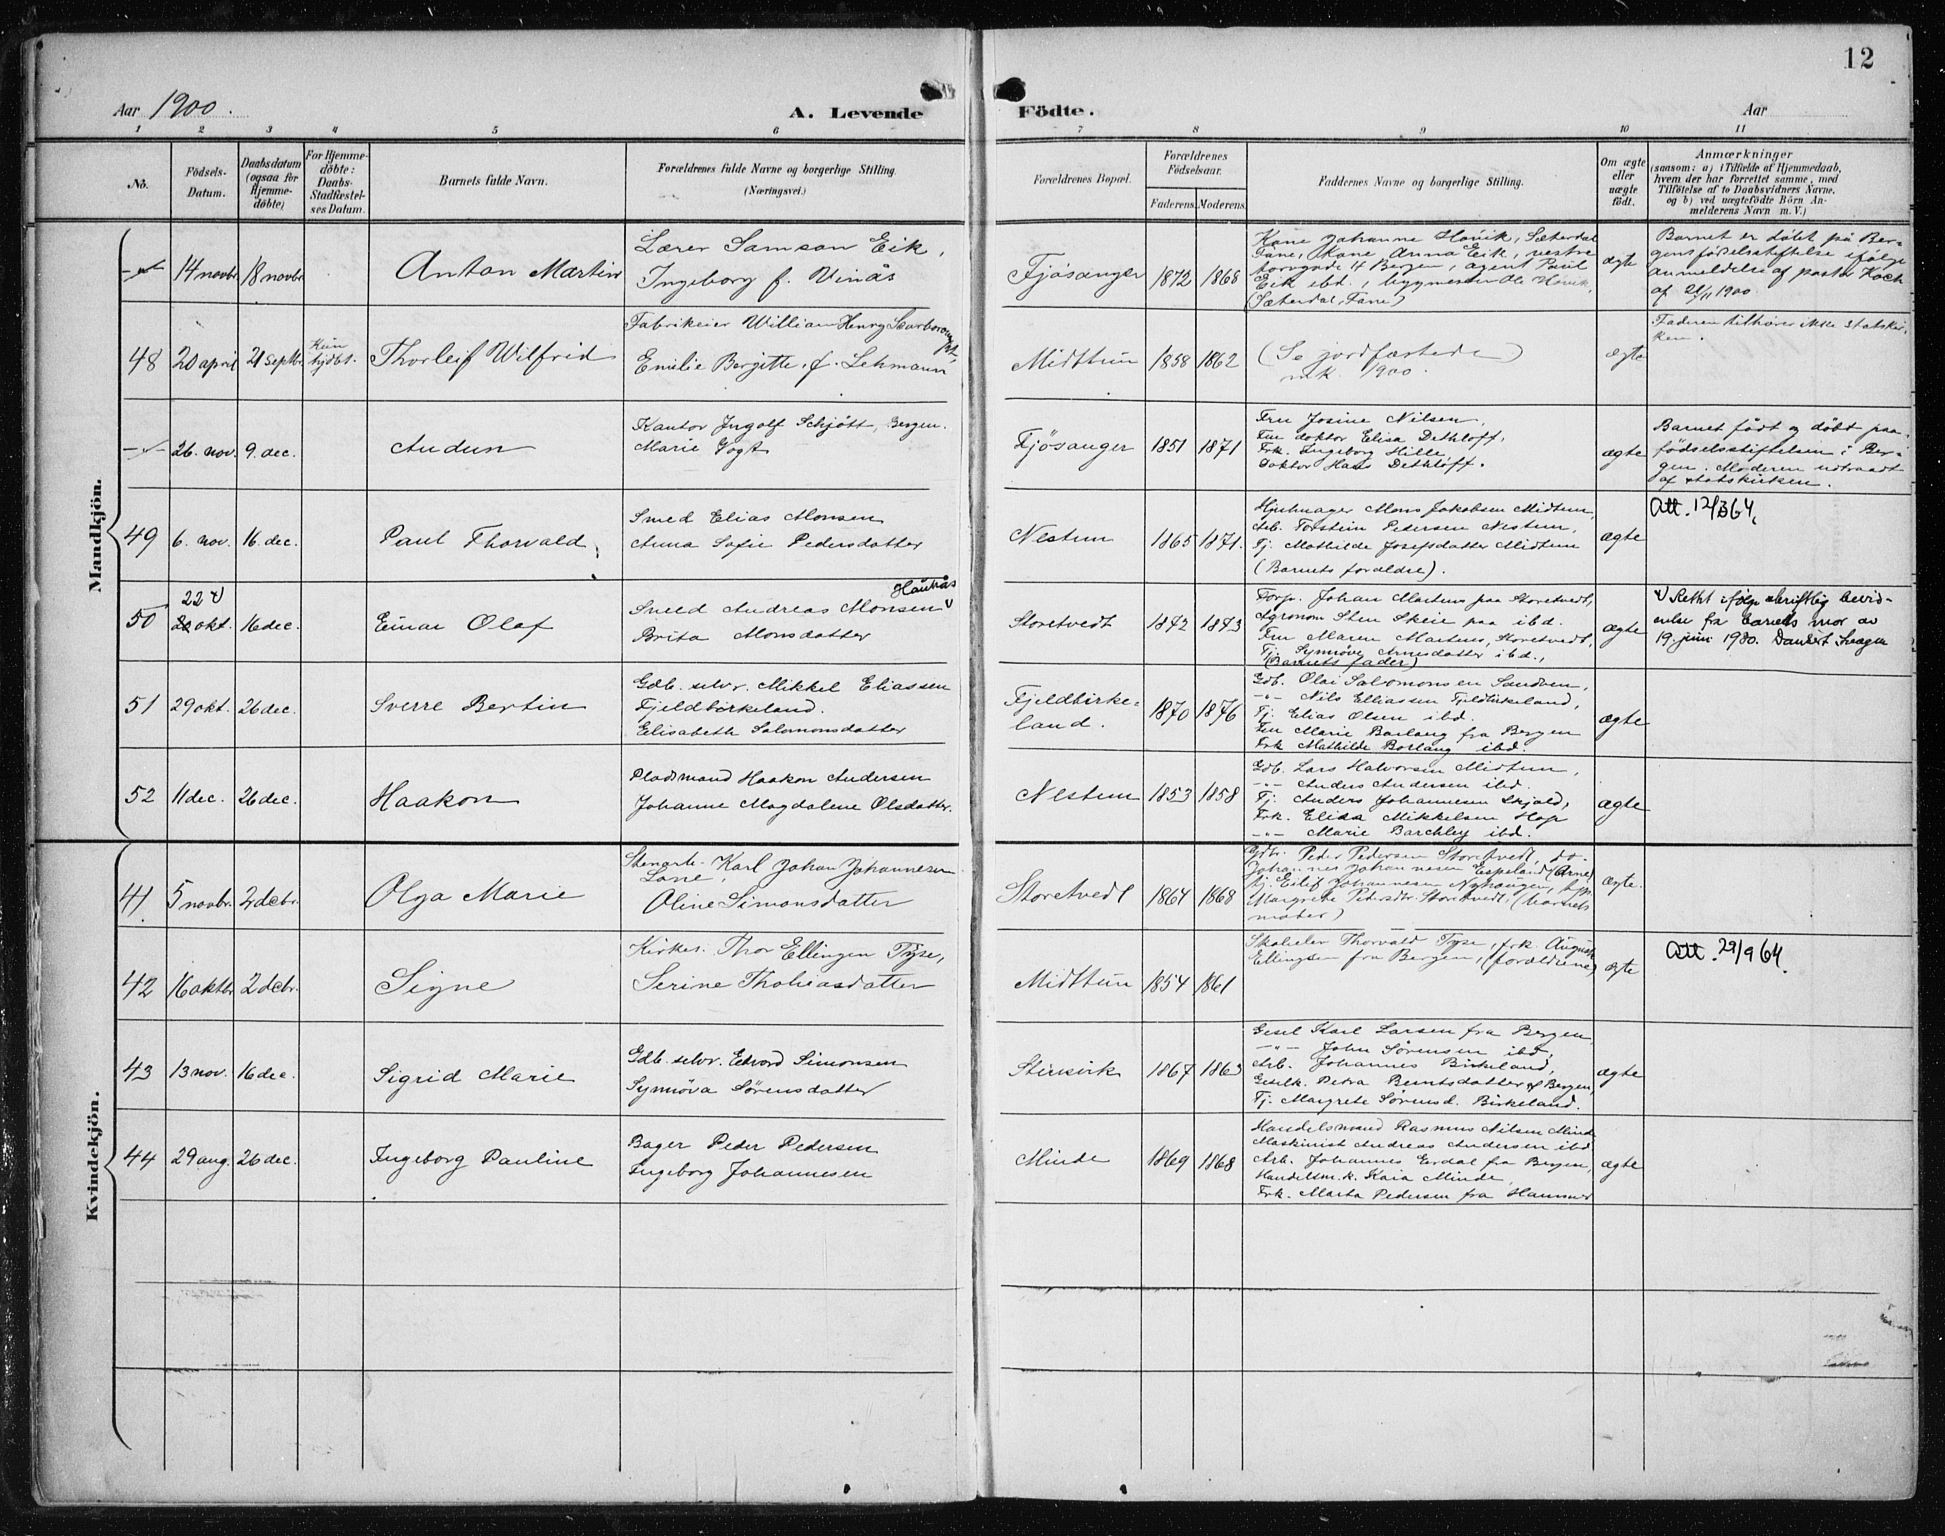 12
Aar 1900.
A. Levende Födte.
Aar
1 2 3 4 5 6 7 8 9 10 11
No.
Födsels-
Datum.
Daabsdatum
(ogsaa for
Hjemme-
döbte)
For Hjemme-
döbte:
Daabs-
Stadfæstel-
ses Datum.
Barnets fulde Navn.
Forældrenes fulde Navne og borgerlige Stilling.
(Næringsvei.)
Forældrenes Bopæl.
Forældrenes
Födselsaar.
Faderens. Moderens.
Faddernes Navne og borgerlige Stilling.
Om ægte
eller
uægte
födt.
Anmærkninger
(saasom: a) i Tilfælde af Hjemmedaab,
hvem der har forrettet samme, med
Tilföielse af to Daabsvidners Navne,
og b) ved uægtefödte Börn An-
melderens Navn m. V.)
Mandkjön.
14 novbr 18 novbr
Anton Martin
Lærer Samson Eik,
Ingeborg f. Vinås
Fjøsanger
1872 1868
Kone Johanne Hovik, Sæterdal
Fane, Kone Anna Eik, vestre
torvgade 14 Bergen, agent Poul
Eik ibd., bygmester Ole Hovik,
(Sæterdal, Fane)
ægte
Barnet er döbt på Ber-
gens födselsstiftelse ifölge
anmeldelse af pastor Koch
af 21/11 1900.
48 20 april 21 septbr.
Kun
sydbt.
Thorleif Wilfrid
Fabrikeier William Henry Scarborough
Emilie Bergitte, f. Lehmann
Midttun
1858 1862
(Se jordfæstede
mk. 1900.)
ægte
Faderen tilhører ikke statskir-
ken.
26. nov. 9. dec.
Audun
Kantor Ingolf Schjött, Bergen.
Marie Vogt
Fjösanger
1851 1871
Fru Josine Nilsen,
Fru doktor Elisa Dethloff,
Frk. Ingeborg Hille,
Doktor Hans Dethloff.
ægte
Barnet födt og döbt paa
födselsstiftelsen i Ber-
gen. Moderen udtraadt
af statskirken.
49 6. nov. 16. dec.
Paul Thorvald
Smed Elias Monsen
Anna Sofie Pedersdatter
Nestun
1865 1871.
Hjulmager Mons Jakobsen Midtun,
Arb. Torstein Pedersen Nestun,
Tj. Mathilde Josefsdatter Midtun
(Barnets forældre).
ægte
Att. 12/3 64.
22 V
50 20 okt. 16 dec.
Einar Olaf
Haukås
Smed Andreas Monsen V
Brita Monsdatter
Storetvedt
1872 1873
Forp. Johan Martens paa Storetvedt,
Agronom Sten Skeie paa ibd.
Fru Maren Martens, Storetvedt,
Tj. Synnöve Arnesdatter ibd.,
(Barnets fader)
ægte
V Rettet ifølge skriftlig bevid-
nelse fra barnets mor av
19. juni 1930.
51 29 okt. 26 dec.
Sverre Bertin
Gdb. selv. Mikkel Eliassen
Fjeldbirkeland.
Elisabeth Salomonsdatter
Fjeldbirke-
land.
1870 1876
Gdb. Olai Salomonsen Sandven,
-"- Nils Elliassen Fjeldbirkeland,
Tj. Elias Olsen ibd.
Fru Marie Borlaug fra Bergen
Frk Mathilde Borlaug ibd.
ægte
52 11 dec. 26 dec.
Haakon
Pladsmand Haakon Andersen
Johanne Magdalene Olsdatter.
Nestun
1853 1858
Gdb. Lars Halvorsen Midtun,
-"- Anders Andersen ibd.
Tj. Anders Johannesen Skjold,
Frk. Elisa Mikkelsen Hop
-"- Marie Barchley ibd.
ægte
Kvindekjön.
41. 5 novbr. 2 debr.
Olga Marie
Stenarb. Karl Johan Johannesen
Lone,
Oline Simonsdatter
Storetvedt
1864 1868
Gdbr. Peder Pedersen Storetvedt, do-
Johannes Johannesen Espeland (Arne)
tj. Eilif Johannesen Nyhaugen,
Margrete Pedersdtr. Storetvedt, (barnets
moder)
ægte.
42 16 oktbr 2 debr.
Signe
Kirkes. Thor Ellingen Tyse,
Serine Thobiasdatter
Midttun
1854 1861
Skolelev Thorvald Tyse, frk. Augusta
Ellingsen fra Bergen, (forældrene)
ægte
Att. 29/9 64.
43 13 nov. 16 dec.
Sigrid Marie
Gdb. selv. Edvard Simonsen
Synnöva Sörensdatter
Stensvik
1867 1863
Gesel Karl Larsen fra Bergen
-"- John Sörensen ibd,
Arb. Johannes Birkeland,
Geselk. Petra Berntsdatter af Bergen,
Tj. Margrete Sörensd. Birkeland.
ægte
44 29 aug. 26 dec.
Ingeborg Pauline
Bager Peder Pedersen
Ingeborg Johannesen
Minde
1869 1868
Handelsmand Rasmus Nilsen Minde
Maskinist Andreas Andersen ibd
Arb. Johannes Eerdal fra Bergen,
Handelsm. k. Kaia Minde,
Frk. Marta Pedersen fra Hammer
ægte